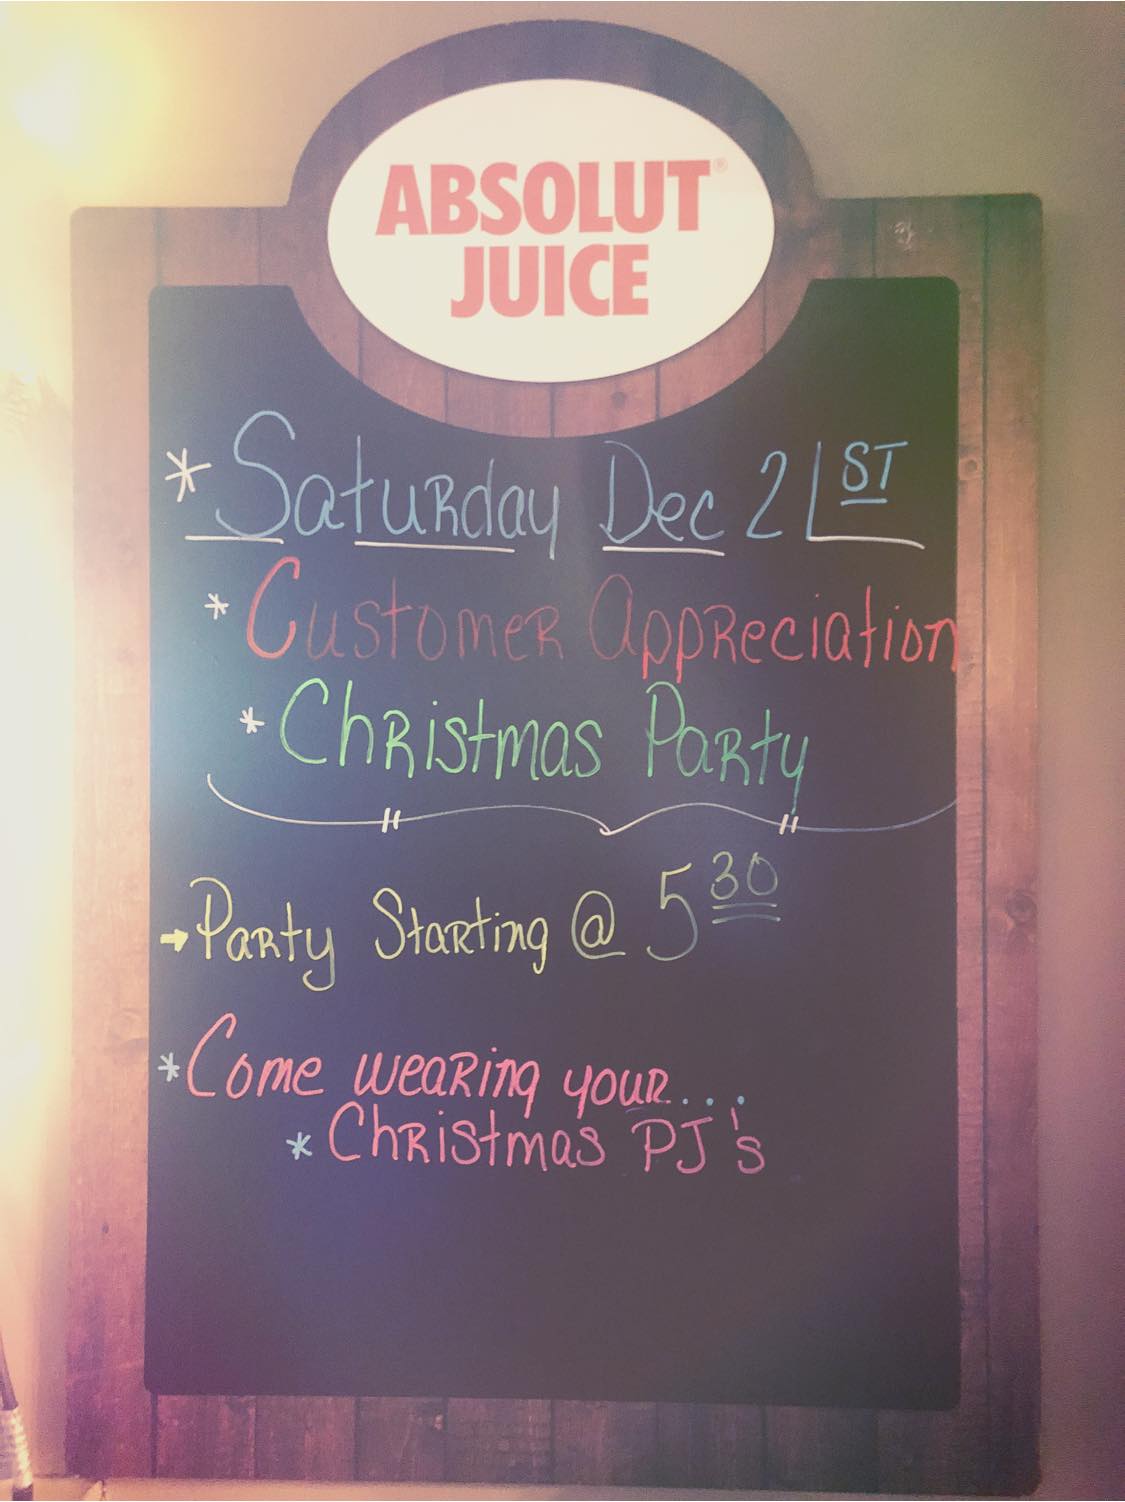 ABSOLUT®
JUICE
* Saturday Dec 21ST
* Customer Appreciation
* Christmas Party
→ Party Starting @ 530
* Come wearing your...
* Christmas PJ's